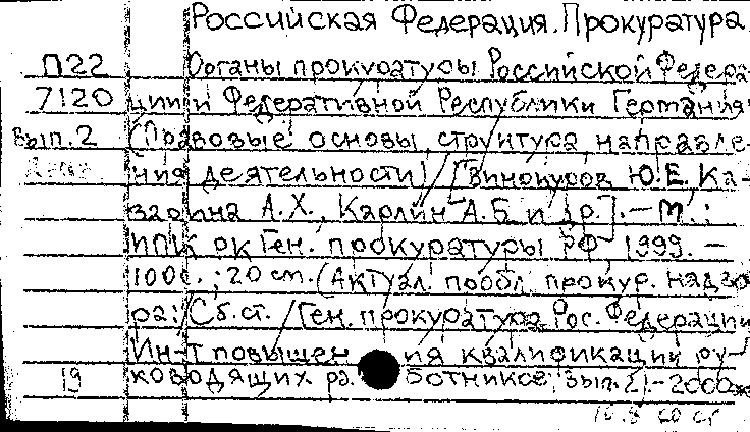 Российская Федерация. Прокуратура
П22 Органы прокуратуры Российской Федера
7120 ции и Федеративной Республики Германия:
Вып. 2 (Правовые основы, структура, направле-
ния деятельности) / [Винокуров Ю.Е., Ка-
зарина А.Х., Карлин А.Б. и др.]. — М.:
ИПК рк Ген. прокуратуры РФ, 1999. —
100с.; 20 см. (Актуал. пробл. прокур. надзо
ра: / Сб. ст. / Ген. прокуратура Рос. Федерации
Ин-т повышен ия квалификации ру-
19 ководящих ра ботников; вып. 2). - 2000